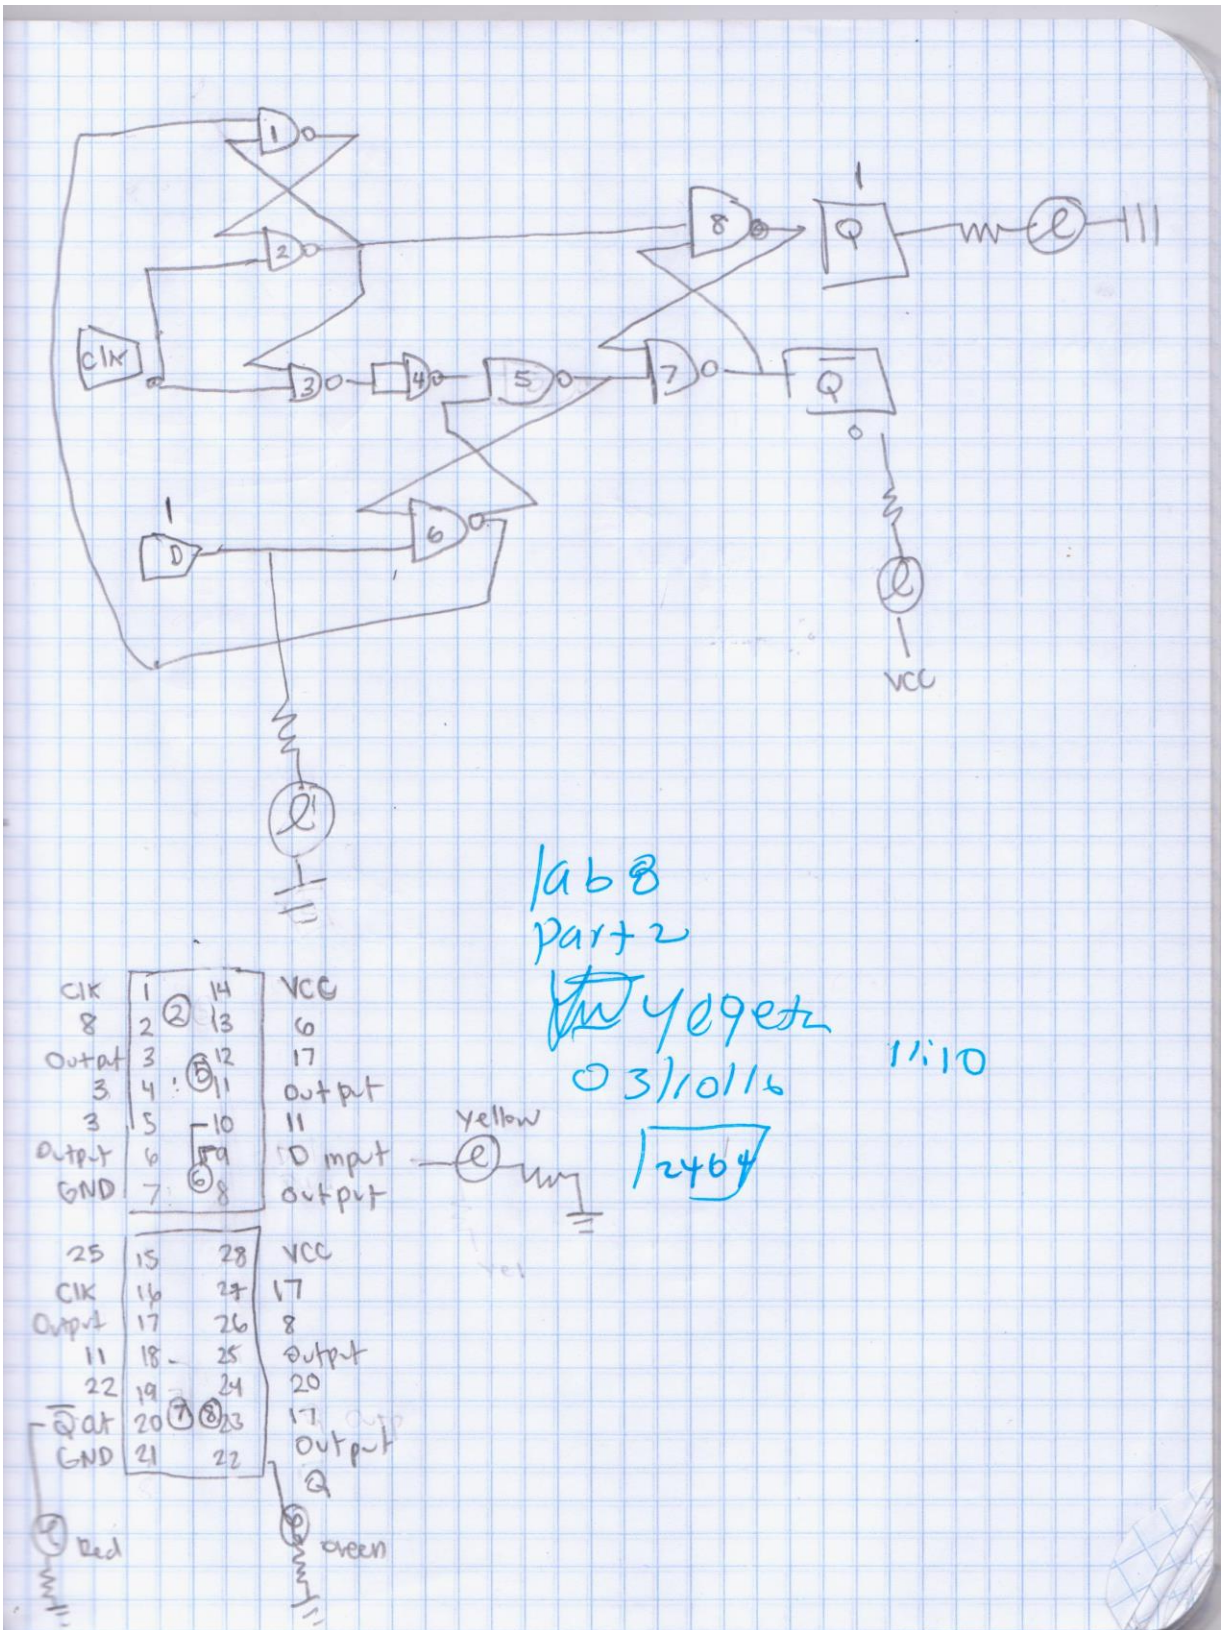 1
2
8
1
Q
l
CLK
3
4
5
7
Q̅
0
1
D
6
l
VCC
l
lab 8
part 2
03/10/16
11:10
2464
CLK 1 14 VCC
8 2 ② 13 6
Output 3 12 17
3 4 ⑤ 11 Output
3 5 10 11
Output 6 9 D input
GND 7 ⑥ 8 Output
yellow
25 15 28 VCC
CLK 16 27 17
Output 17 26 8
11 18 25 Output
22 19 24 20
Q̅ out 20 ⑦ ⑧ 23 17
GND 21 22 Output
Q
Red
Green